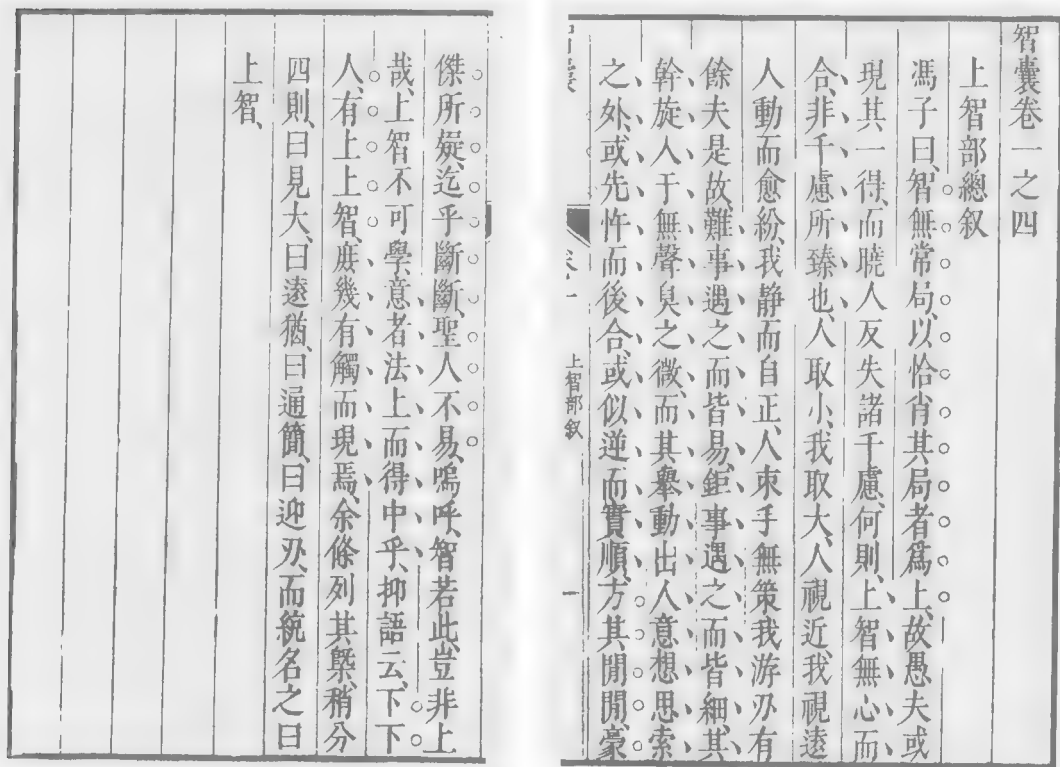 智囊卷一之四
上智部總叙
馮子曰、智無常局、以恰肖其局者爲上、故愚夫或
現其一得、而曉人反失諸千慮、何則、上智無心而
合、非千慮所臻也、人取小、我取大、人視近、我視遠
人動而愈紛、我静而自正、人束手無策、我游刃有
餘、夫是故、難事遇之而皆易、鉅事遇之而皆細、其
斡旋人于無聲臭之微、而其舉動出人意想思索
之外、或先忤而後合、或似逆而實順、方其閒閒、豪
卷一
上智部叙
一
傑所疑、迄乎斷斷、聖人不易、嗚呼、智若此、豈非上
哉、上智不可學、意者法上而得中乎、抑語云、下下
人、有上上智、庶幾有觸而現焉、余條列其槩、稍分
四則、曰見大、曰遠猶、曰通簡、曰迎刃、而統名之曰
上智、